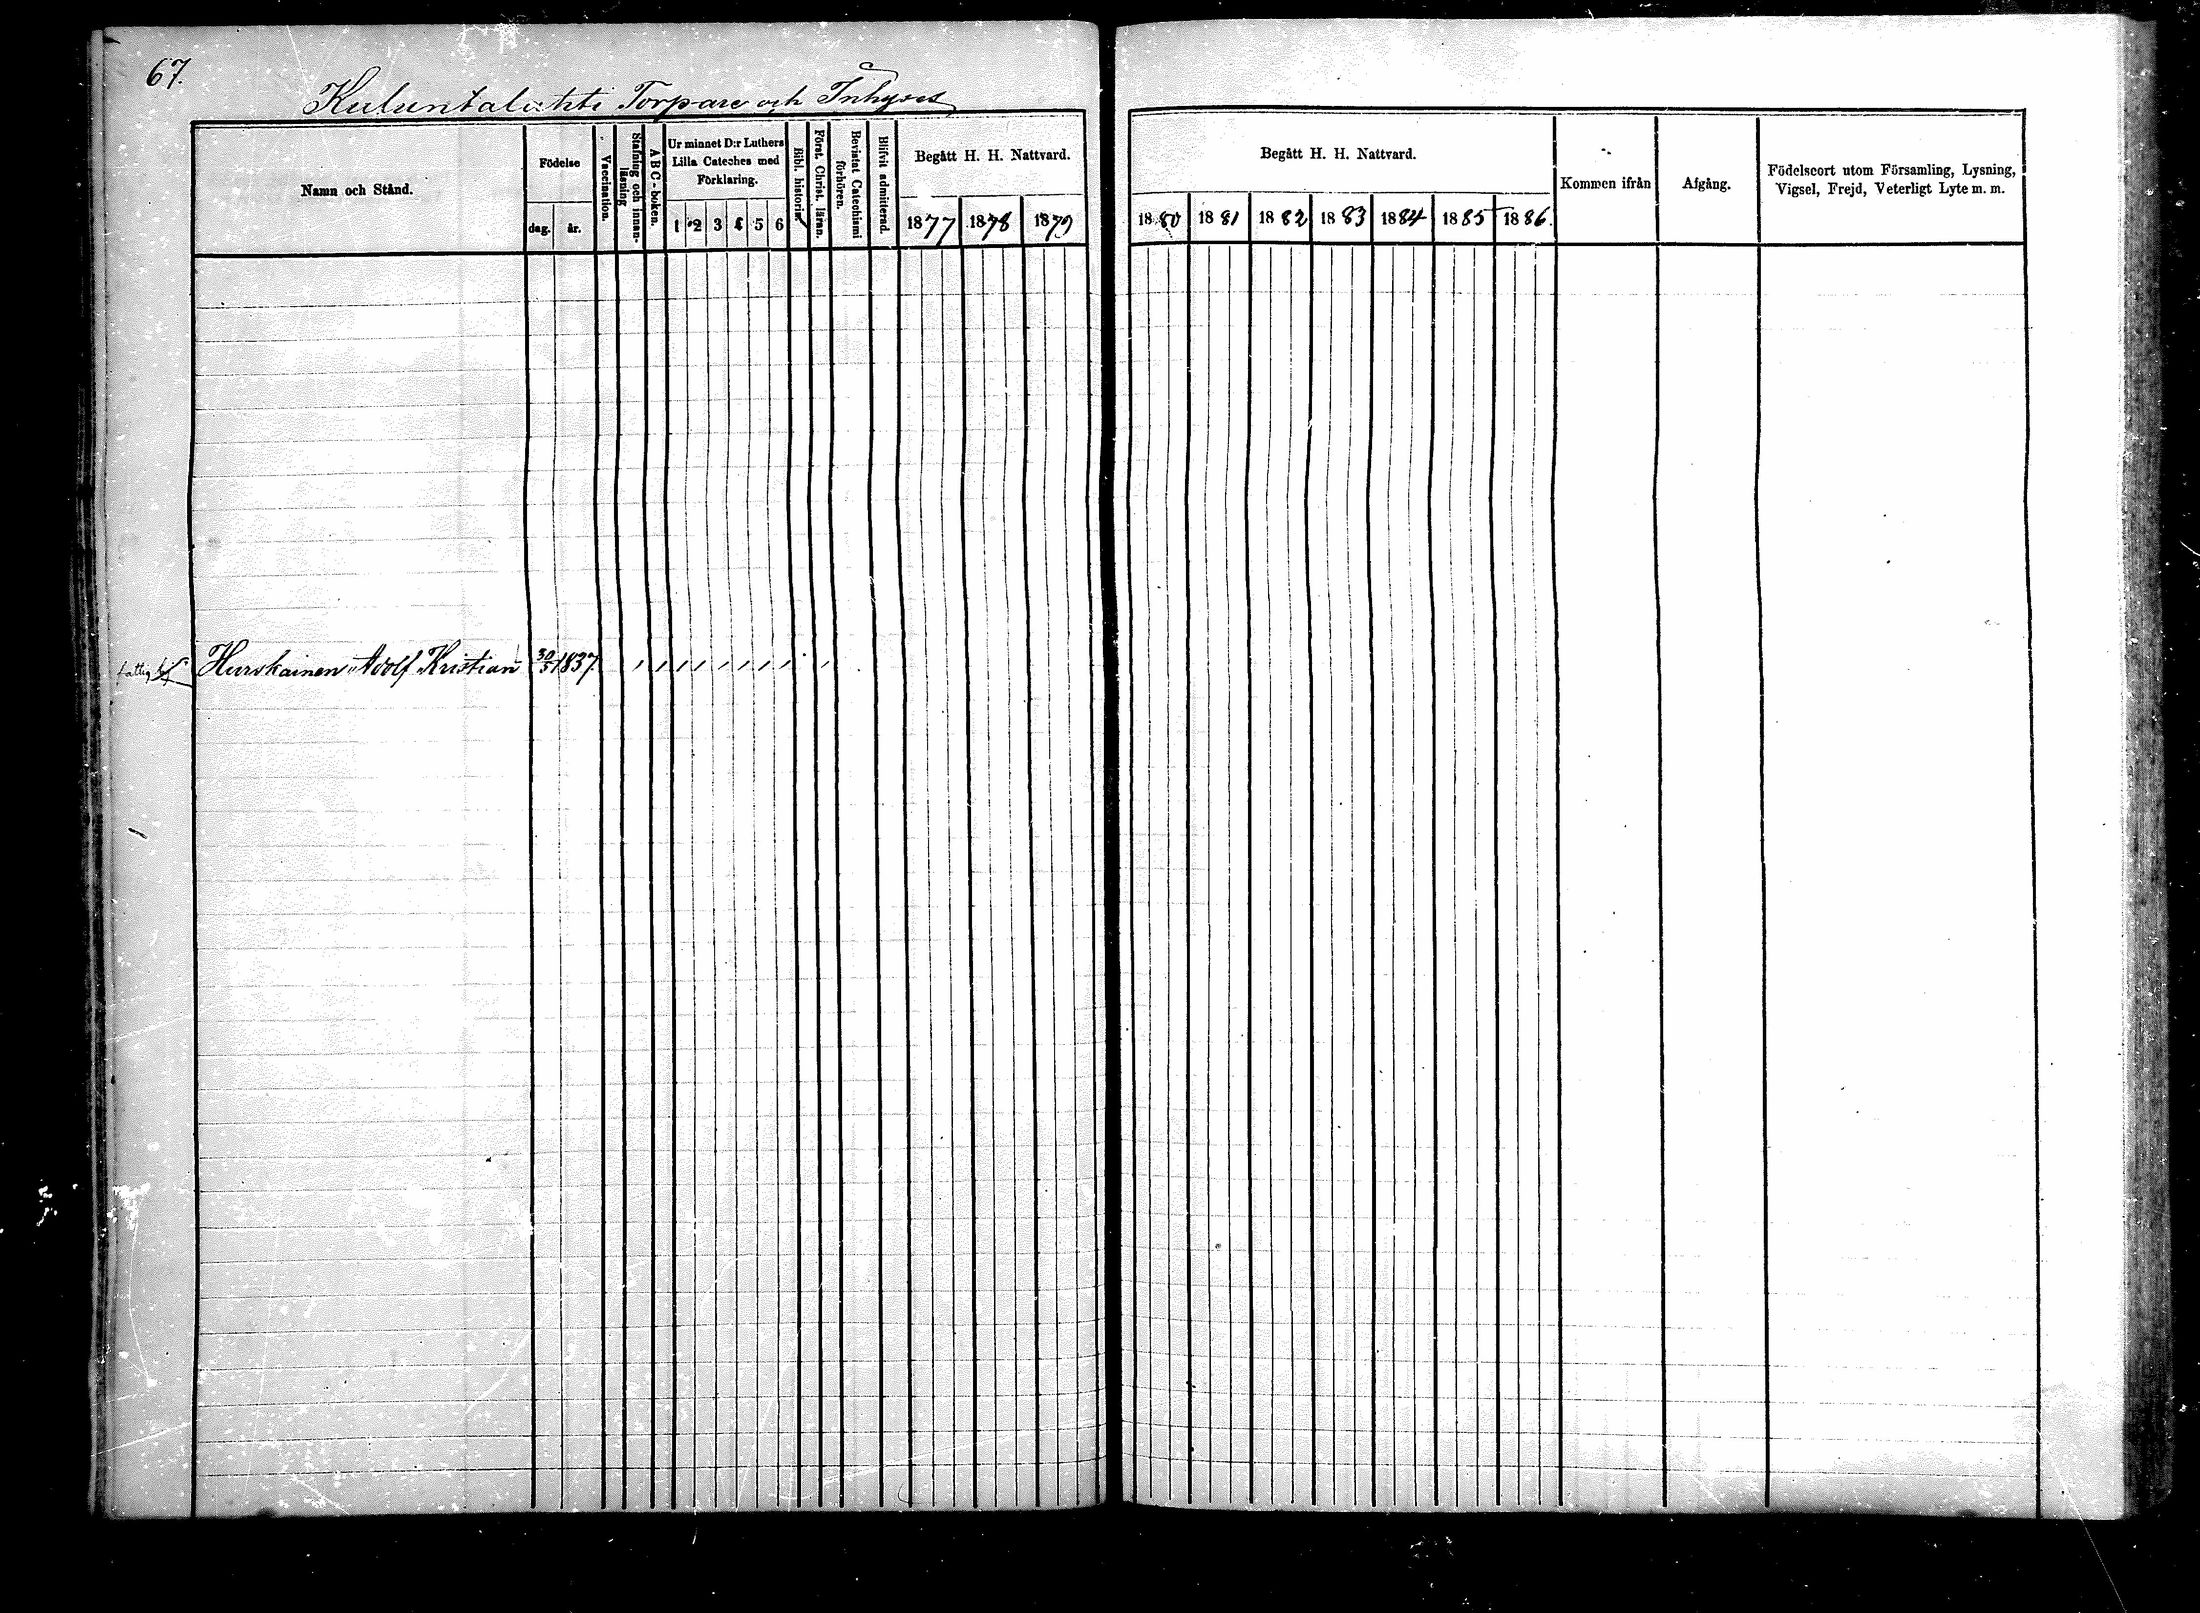 67.
Kuluntalahti Torpare och Inhyses
Namn och Stånd.
Födelse
dag.
år.
Vaccination.
Stafning och innan-
läsning
ABC-boken.
Ur minnet D:r Luthers
Lilla Cateches med
Förklaring.
1 2 3 4 5 6
Bibl. historia
Först. Christ. läran.
Bevistat Catechismi
förhören.
Blifvit admitterad.
Begått H. H. Nattvard.
1877 1878 1879
Begått H. H. Nattvard.
1880 1881 1882 1883 1884 1885 1886.
Kommen ifrån
Afgång.
Födelseort utom Församling, Lysning,
Vigsel, Frejd, Veterligt Lyte m. m.
Hurskainen Adolf Kristian 30/5 1837